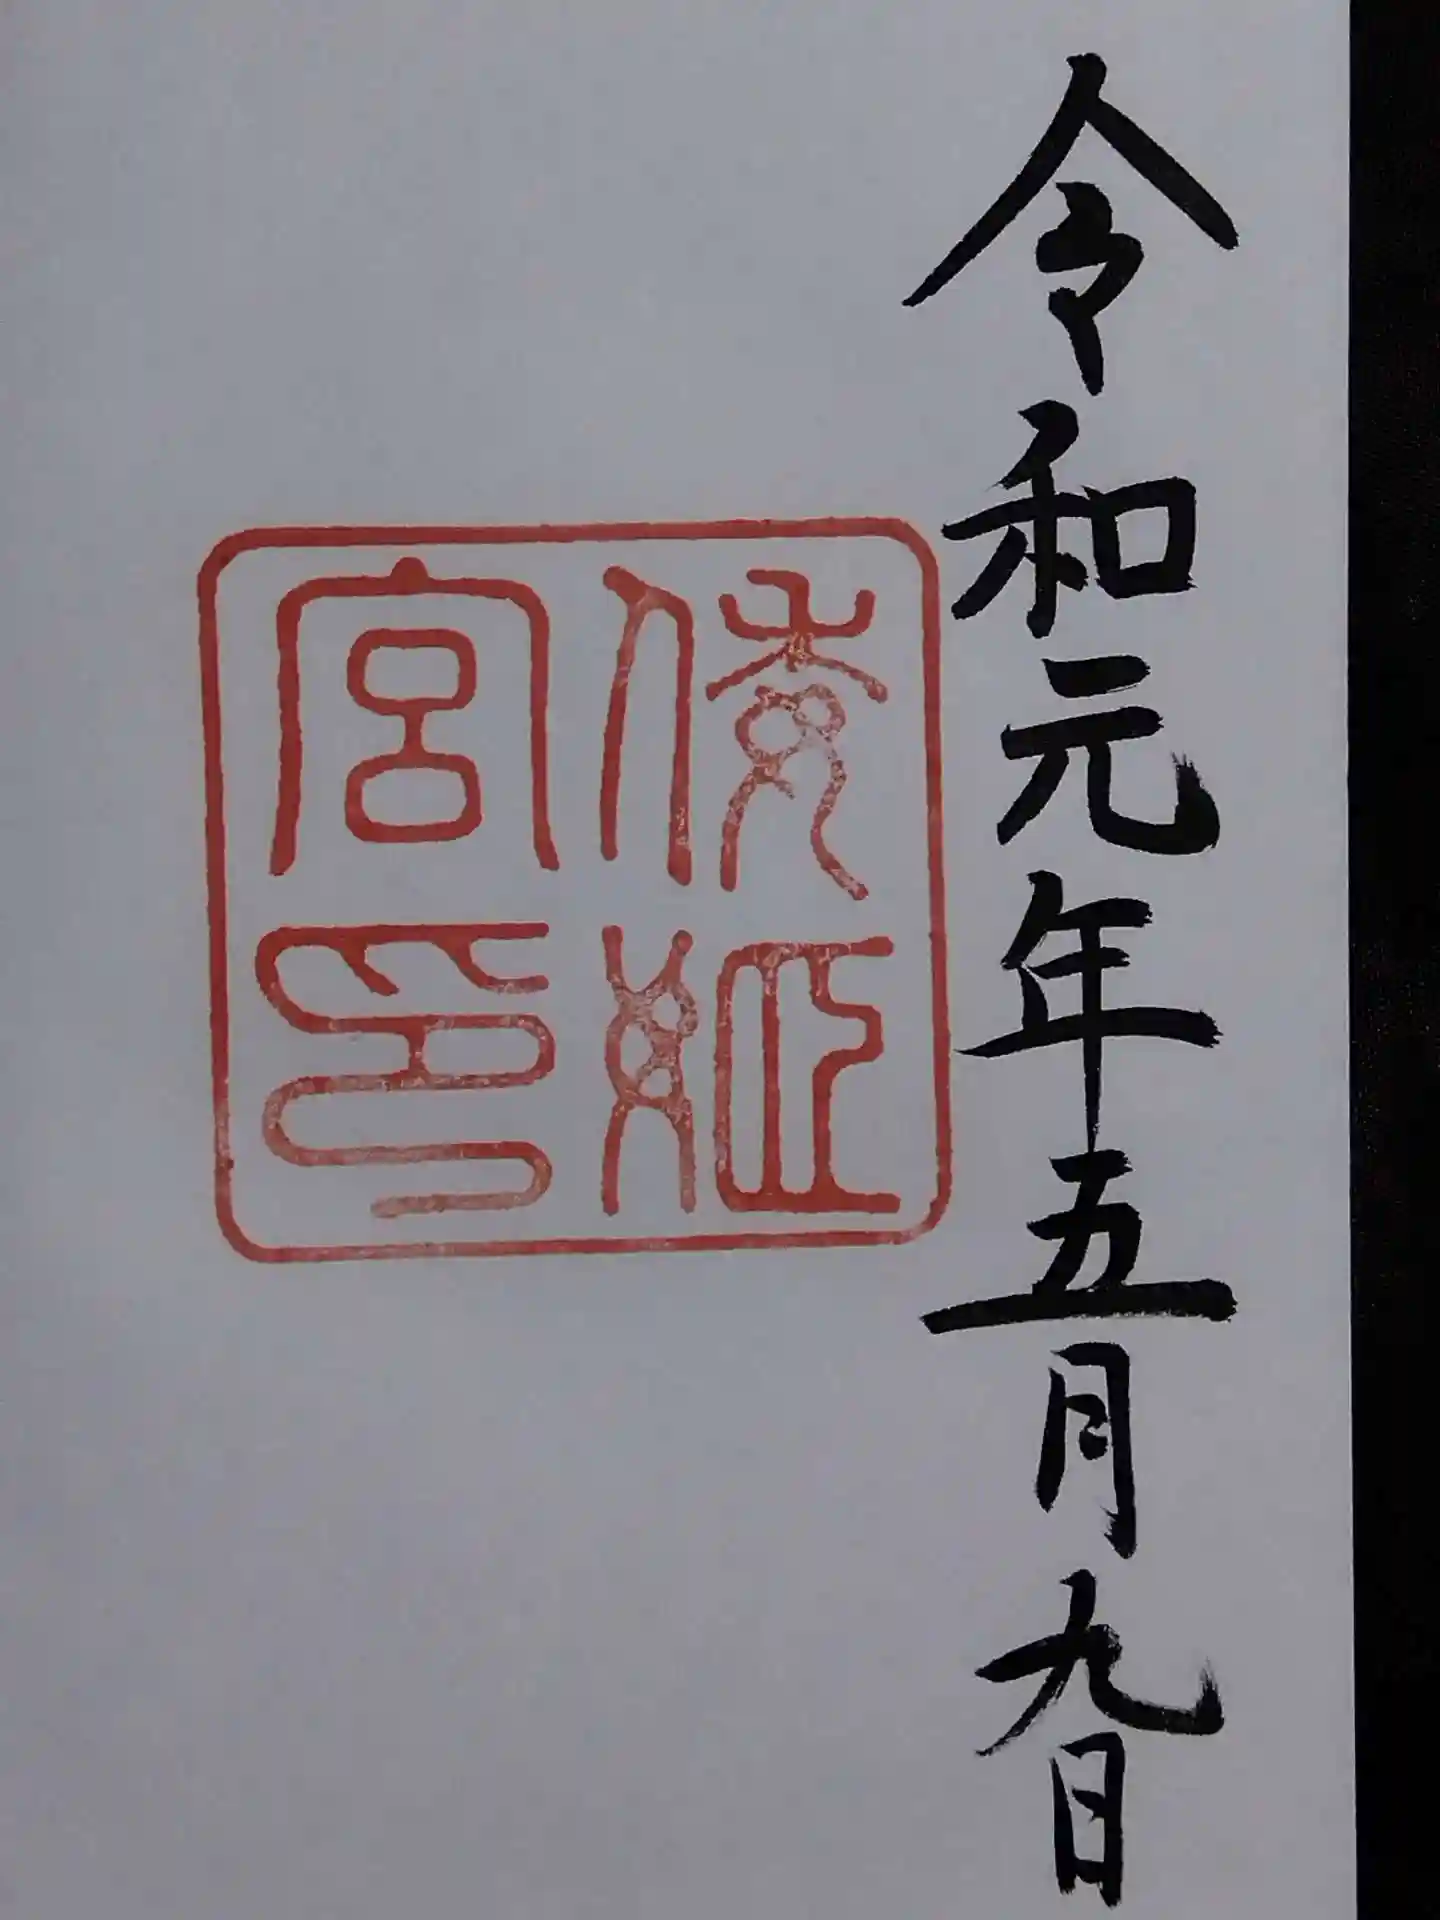 令和元年五月九日
倭姫
宮印